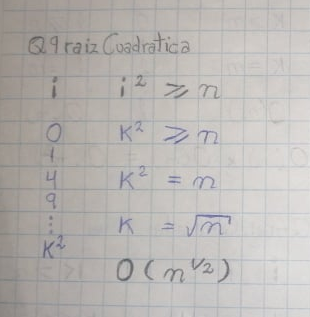 Q9 raiz Cuadratica
i i² ⩾ n
0 K² ⩾ n
1
4 K² = n
9
⋮ K = √n
K²
O(n^1/2)